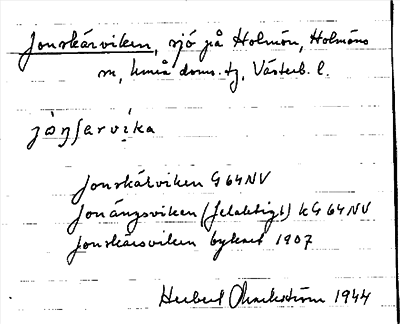 Jonskärviken, sjö på Holmön, Holmöns
sn, Umeå doms. tg, Västerb. l.
jȯŋʃarvika
Jonskärviken G 64 NV
Jonängsviken (felaktigt) k G 64 NV
Jonskärsviken bykart 1907
Herbert 1944